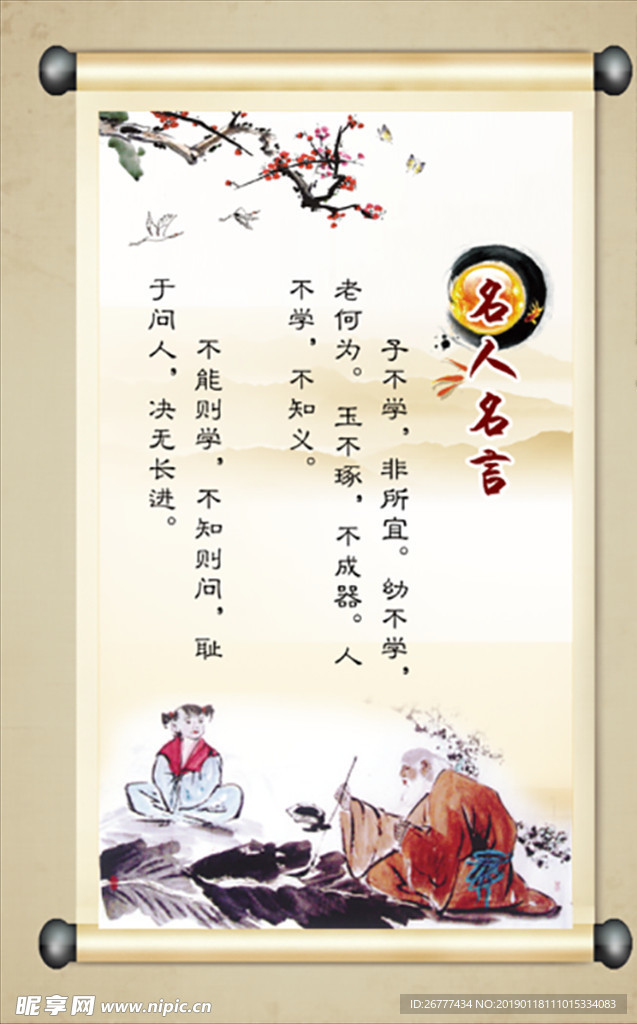 名人名言
子不学，非所宜。幼不学，
老何为。玉不琢，不成器。人
不学，不知义。
不能则学，不知则问，耻
于问人，决无长进。
昵享网 www.nipic.cn
ID:26777434 NO:20190118111015334083